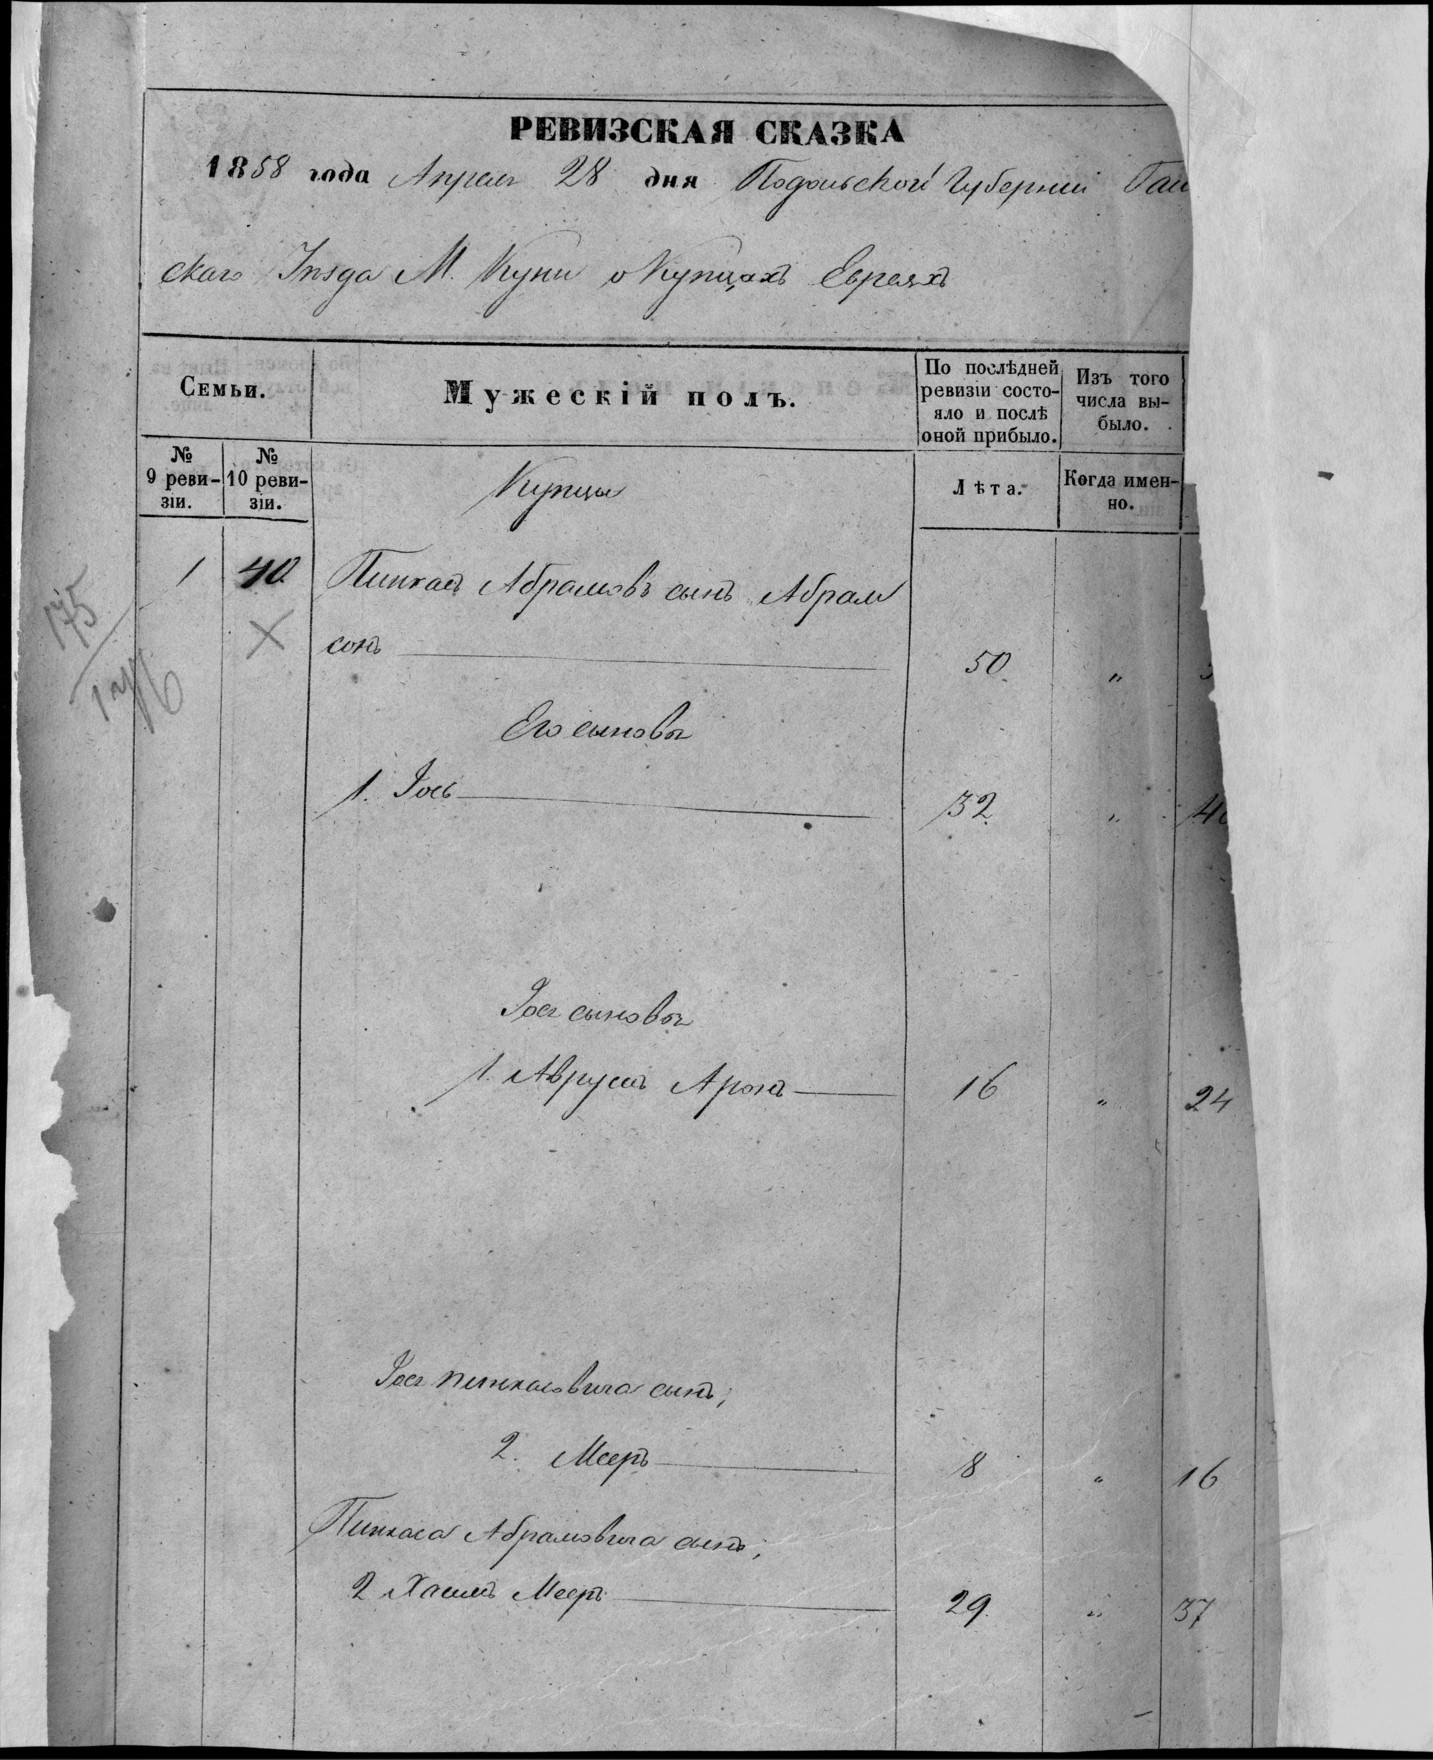 РЕВИЗСКАЯ СКАЗКА
1858 года Апреля 28 дня Подольской Губернии Гай
скаго Уезда М. Куни о Купцахъ Евреяхъ
Семьи.
Мужескій полъ.
По послѣдней
ревизіи состо-
яло и послѣ
оной прибыло.
Изъ того
числа вы-
было.
№
9 реви-
зіи.
№
10 реви-
зіи.
Купцы
Лѣта.
Когда имен-
но.
1 40 Пинкасъ Абрамовъ сынъ Абрам
сонъ 50 "
175
Его сыновья
1. Іось 32 "
Іося сыновья
1. Аврумъ Аронъ 16 " 24
Іося Пинкасовича сынъ;
2. Мееръ 8 " 16
Пинкаса Абрамовича сынъ;
2 Хаимъ Мееръ 29 " 37